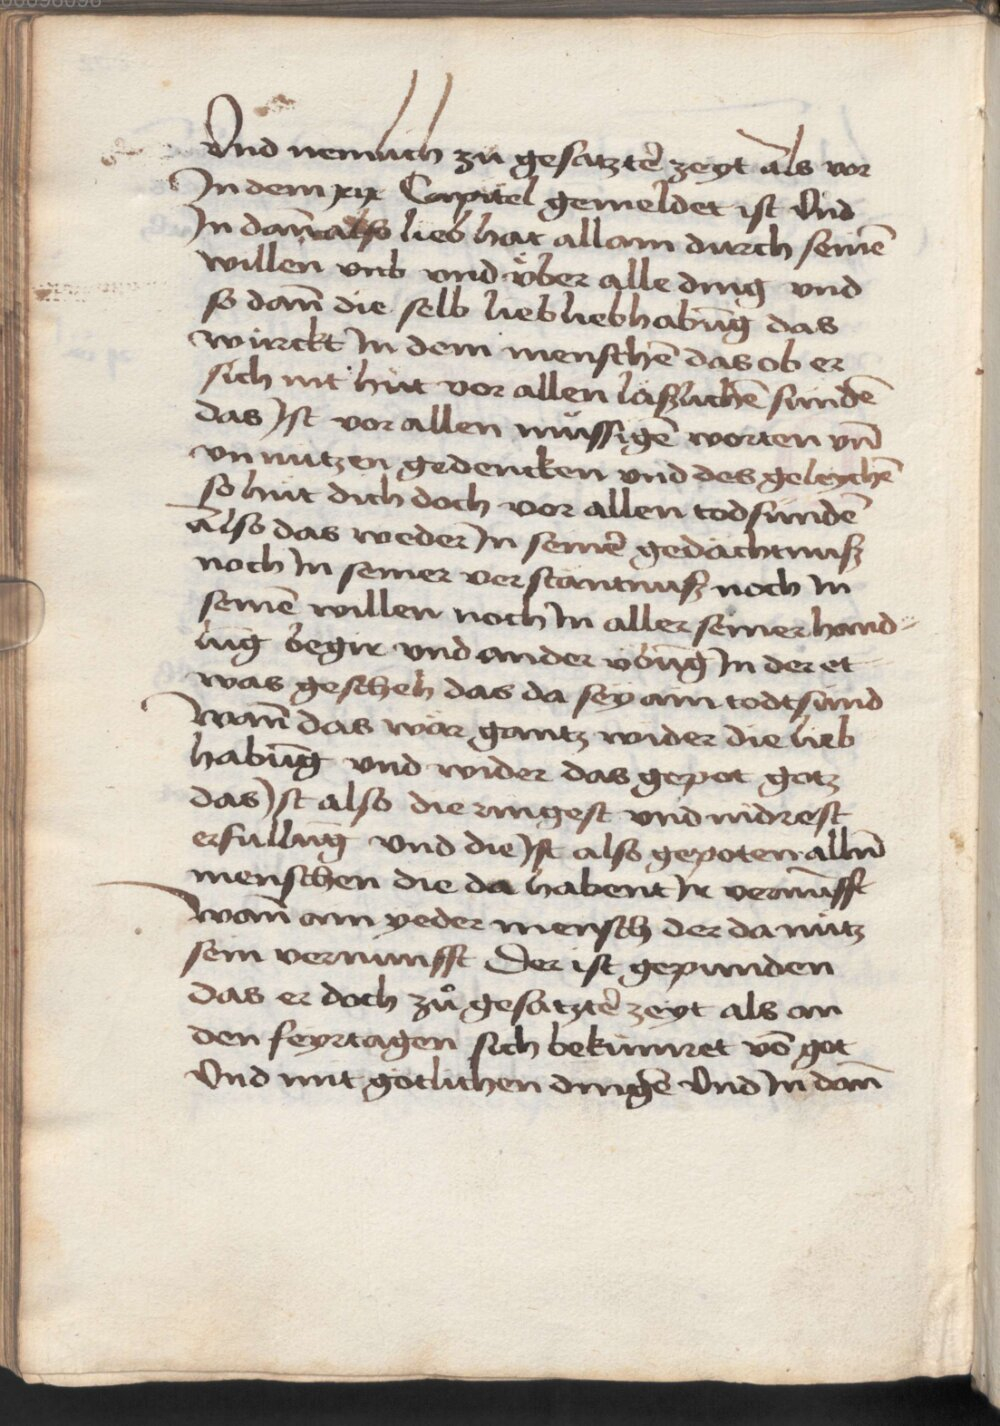 Vnd nemlich zu gesatztē zeyt als vor
In dem xix Capitel gemeldet ist Vnd
In dañ also lieb hat allain durch seinē
willen vnb vnd v̈ber alle ding vnd
so dañ die selb lieb liebhabūg das
wirckt In dem menschē das ob er
sich nit hüt vor allen läszlichē sündē
das Ist vor allen müssigē worten vn̄
vnnutzen gedencken vnd des geleychē
so hüt dich doch vor allen todsündē
also das weder In seinē gedächtnusz
noch In seiner verstäntnusz noch In
seinē willen noch In aller seiner hand-
lūg begir vnd ander vbūg In der et
was gescheh das da sey ain todtsünd
Wañ das wär gantz wider die lieb
habūg vnd wider das gepot gotz
das Ist also die ringest vnd nidrest
erfüllūg Vnd die Ist also gepoten allñ
menschen die da habent Ir vernūfft
Wañ ain yeder mensch der da nütz
sein vernunfft Der ist gepunden
das er doch zů gesatztē zeyt als an
den feyrtagen sich bekümret vō got
Vnd mit götlichen dingē Vnd In dañ